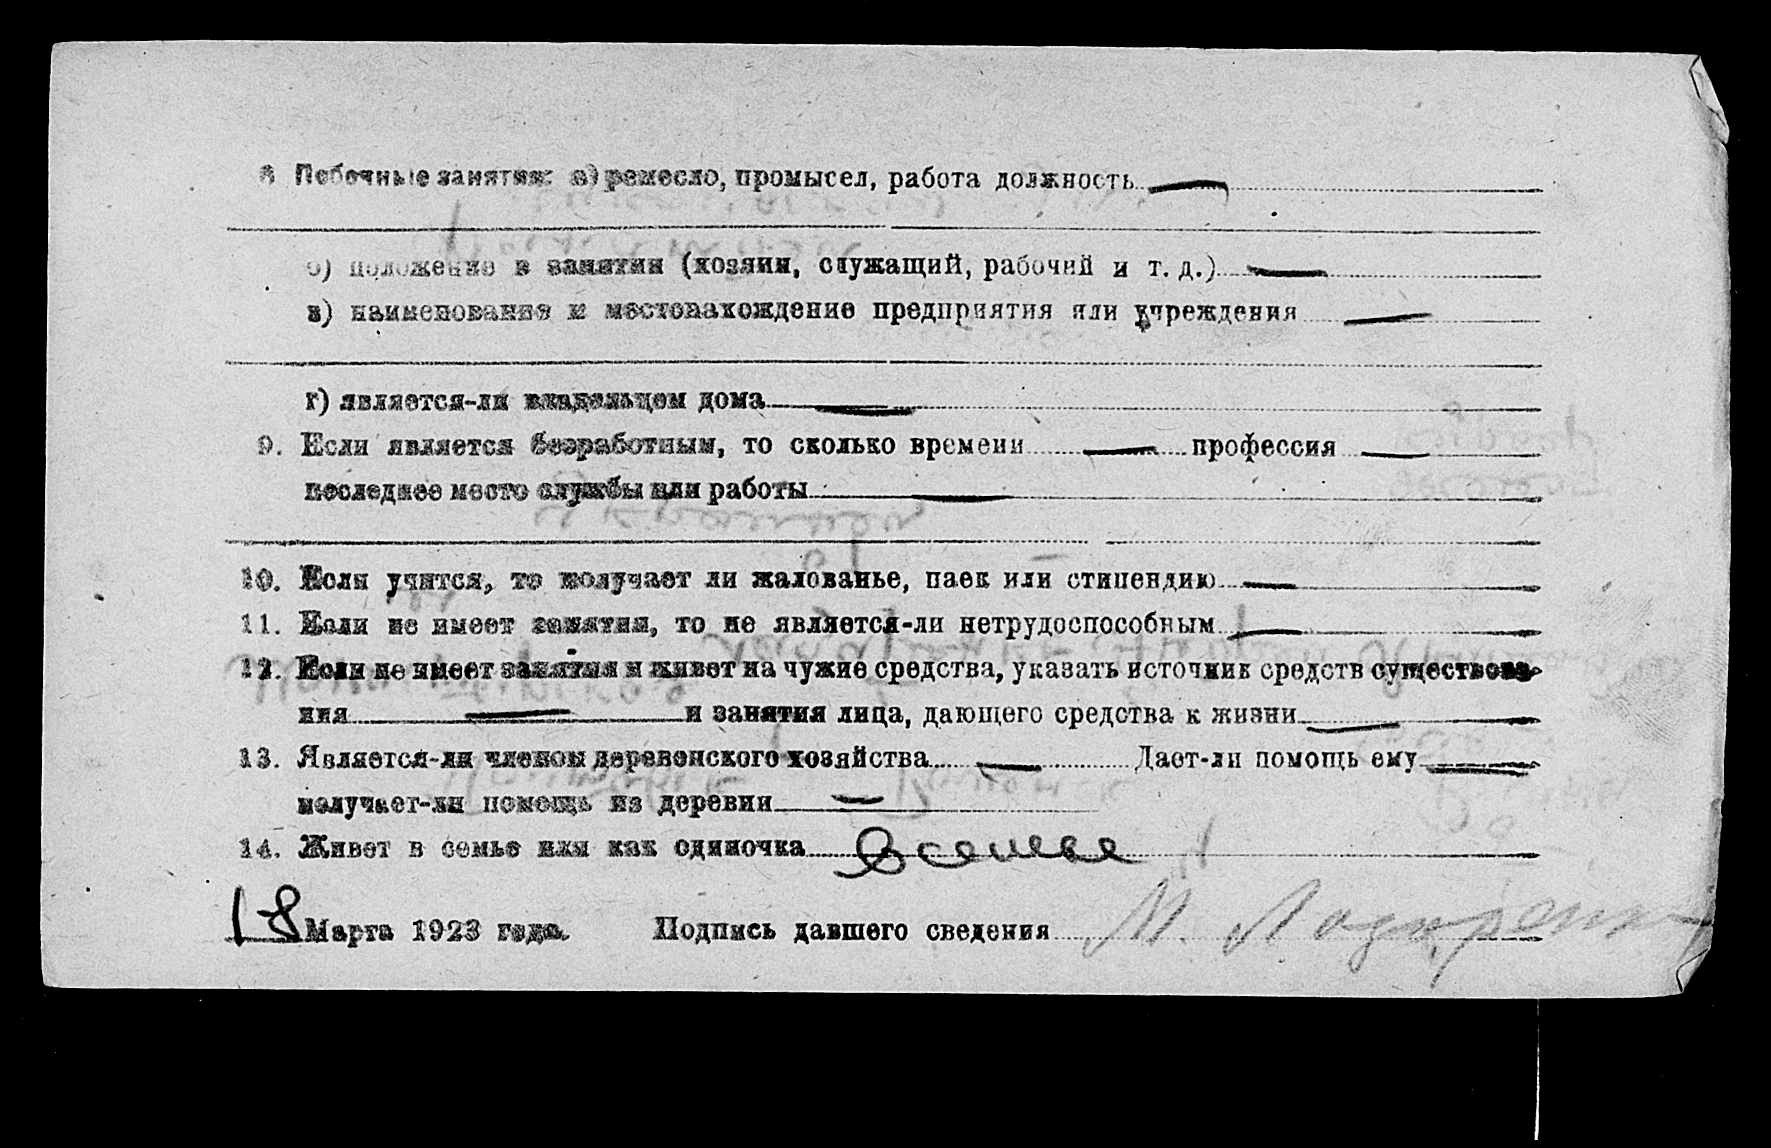 8 Побочные занятия: а) ремесло, промысел, работа должность —
б) положение в занятии (хозяин, служащий, рабочий и т. д.) —
в) наименование и местонахождение предприятия или учреждения —
г) является-ли владельцем дома —
9. Если является безработным, то сколько времени — профессия —
последнее место службы или работы —
10. Если учится, то получает ли жалованье, паек или стипендию —
11. Если не имеет занятия, то не является-ли нетрудоспособным —
12. Если не имеет занятия и живет на чужие средства, указать источник средств существова-
ния — и занятия лица, дающего средства к жизни —
13. Является-ли членом деревенского хозяйства — Дает-ли помощь ему —
получает-ли помощь из деревни —
14. Живет в семье или как одиночка В семье
18 Марта 1923 года. Подпись давшего сведения М.